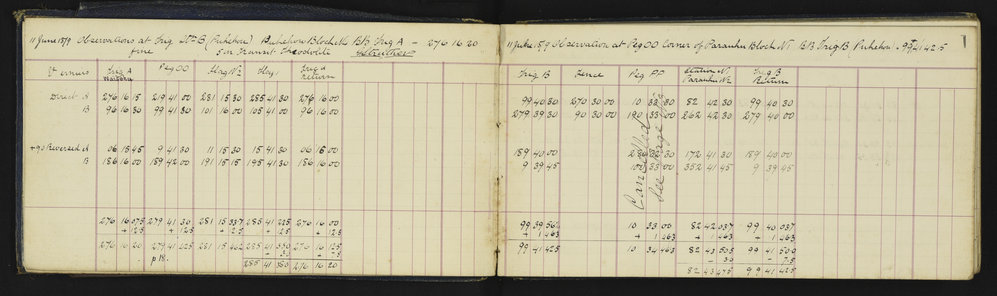 11 June 1879 Observations at Trig Stn B (Pukehou) Pukehou Block BB Trig A - 276 16 20
fine 5 in Transit Theodolite
Verniers Trig A Peg OO Flag No 2 Flag 1 Trig A return
Direct A 276 16 15 219 41 00 281 15 30 285 41 30 276 16 00
B 96 16 30 99 41 30 101 16 00 105 41 00 96 16 00
+90 Reversed A 06 15 45 9 41 30 11 15 30 15 41 30 06 16 00
B 186 16 00 189 42 00 191 15 15 195 41 30 186 16 00
276 16 075 279 41 30 281 15 337 285 41 225 276 16 00
+ 12.5 + 12.5 + 12.5 + 12.5 + 12.5
276 16 20 279 41 425 281 15 462 285 41 350 276 16 125
p 18.
285 41 276 16 20
11 June 1879 Observation at Peg OO Corner of Paranui Block No 1 BB Trig B Pukehou - 99 41 42.5
1
Trig B Fence Peg PP Station No Paranui No 2 Trig B Return
99 40 30 270 30 00 10 33 30 82 42 30 99 40 30
279 39 30 90 30 00 190 33 00 262 42 30 279 40 00
189 40 00 172 41 30 189 40 00
9 39 45 100 33 00 352 41 45 9 39 45
Cancelled
See page
99 39 562 10 33 00 82 42 037 99 40 037
+ 1 463 + 1 463 + 1 463 + 1 463
99 41 425 10 34 463 82 43 505 99 41 500
- 30 - 7.5
82 43 475 99 41 425